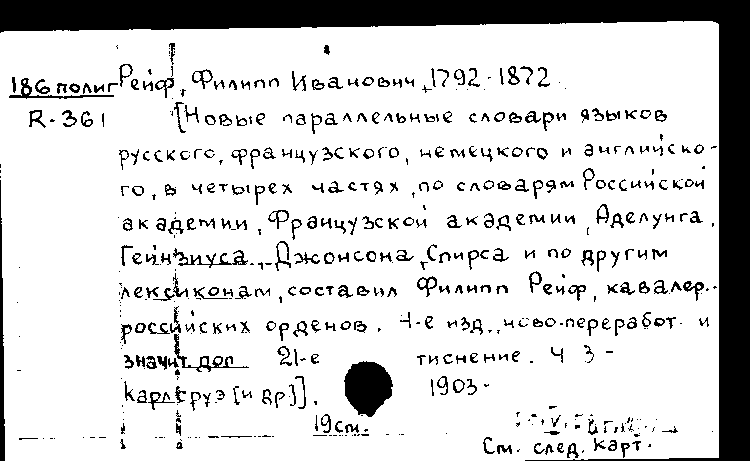 186 полиг Рейф, Филипп Иванович, 1792-1872
R-361 [Новые параллельные словари языков
русского, французского, немецкого и английско-
го, в четырех частях, по словарям Российской
академии, Французской академии, Аделунга,
Гейнзиуса, Джонсона, Спирса и по другим
лексиконам, составил Филипп Рейф, кавалер
российских орденов. 4-е изд., ново-переработ. и
значит. доп 21-е тиснение. Ч 3-
Карлсруэ [и др]]. 1903-
19см.
См. след. карт.